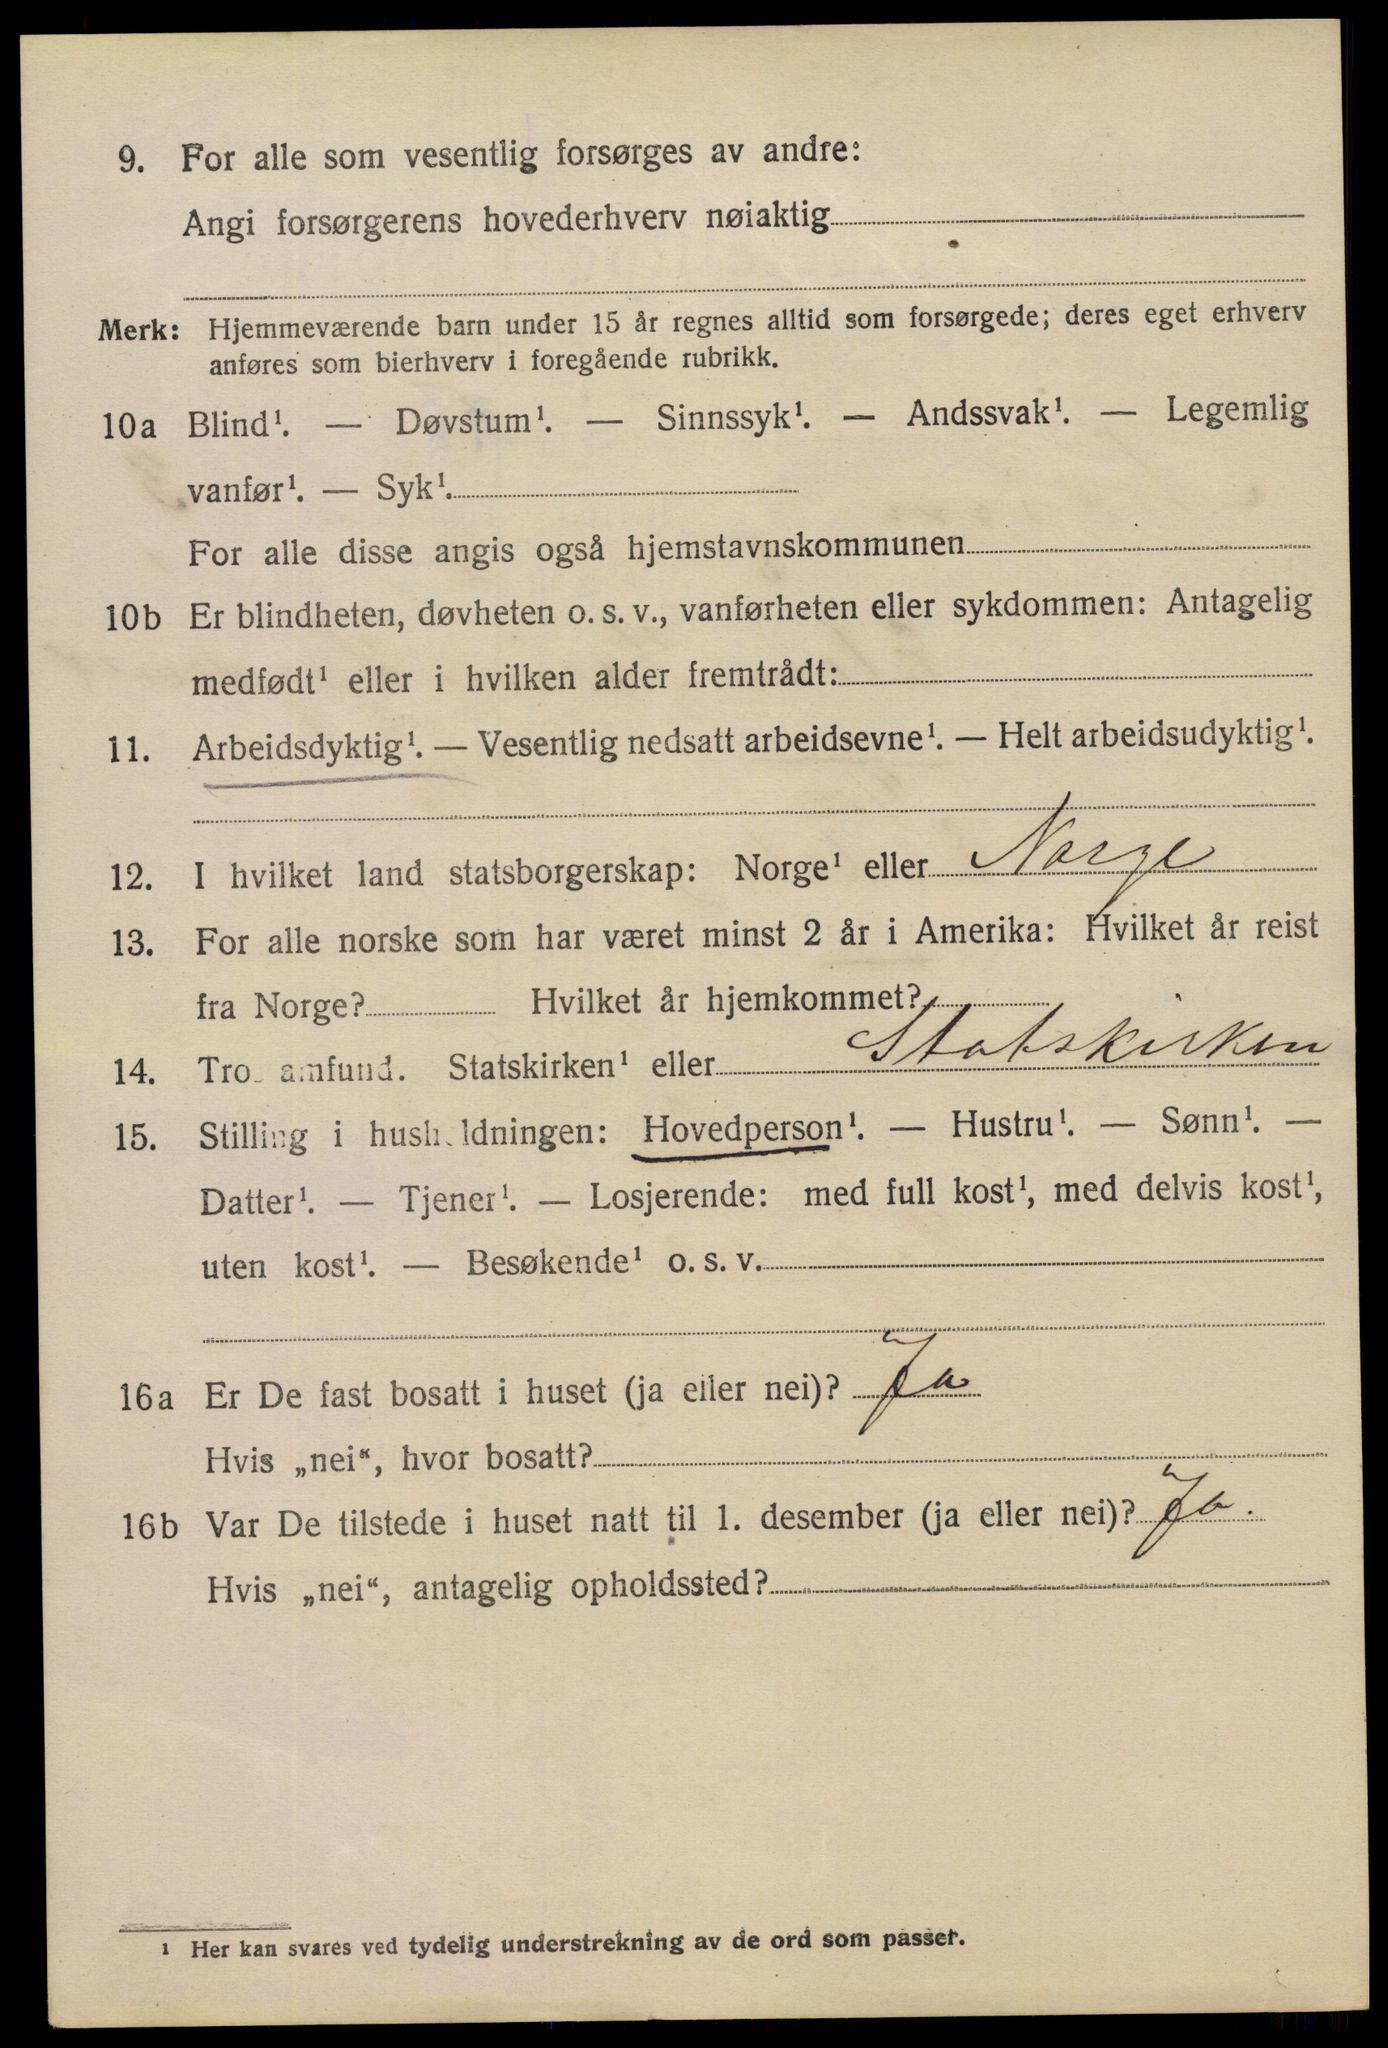 9. For alle som vesentlig forsørges av andre:
Angi forsørgerens hovederhverv nøiaktig
Merk: Hjemmeværende barn under 15 år regnes alltid som forsørgede; deres eget erhverv
anføres som bierhverv i foregående rubrikk.
10a Blind¹. — Døvstum¹. — Sinnssyk¹. — Andssvak¹. — Legemlig
vanfør¹. — Syk¹.
For alle disse angis også hjemstavnskommunen
10b Er blindheten, døvheten o. s. v., vanførheten eller sykdommen: Antagelig
medfødt¹ eller i hvilken alder fremtrådt:
11. Arbeidsdyktig¹. — Vesentlig nedsatt arbeidsevne¹. — Helt arbeidsudyktig¹.
12. I hvilket land statsborgerskap: Norge¹ eller Norge
13. For alle norske som har været minst 2 år i Amerika: Hvilket år reist
fra Norge? Hvilket år hjemkommet?
14. Tro amfund. Statskirken¹ eller Statskirken
15. Stilling i hush ldningen: Hovedperson¹. — Hustru¹. — Sønn¹. —
Datter¹. — Tjener¹. — Losjerende: med full kost¹, med delvis kost¹,
uten kost¹. — Besøkende¹ o. s. v.
16a Er De fast bosatt i huset (ja eller nei)? Ja
Hvis „nei“, hvor bosatt?
16b Var De tilstede i huset natt til 1. desember (ja eller nei)? Ja.
Hvis „nei“, antagelig opholdssted?
¹ Her kan svares ved tydelig understrekning av de ord som passer.